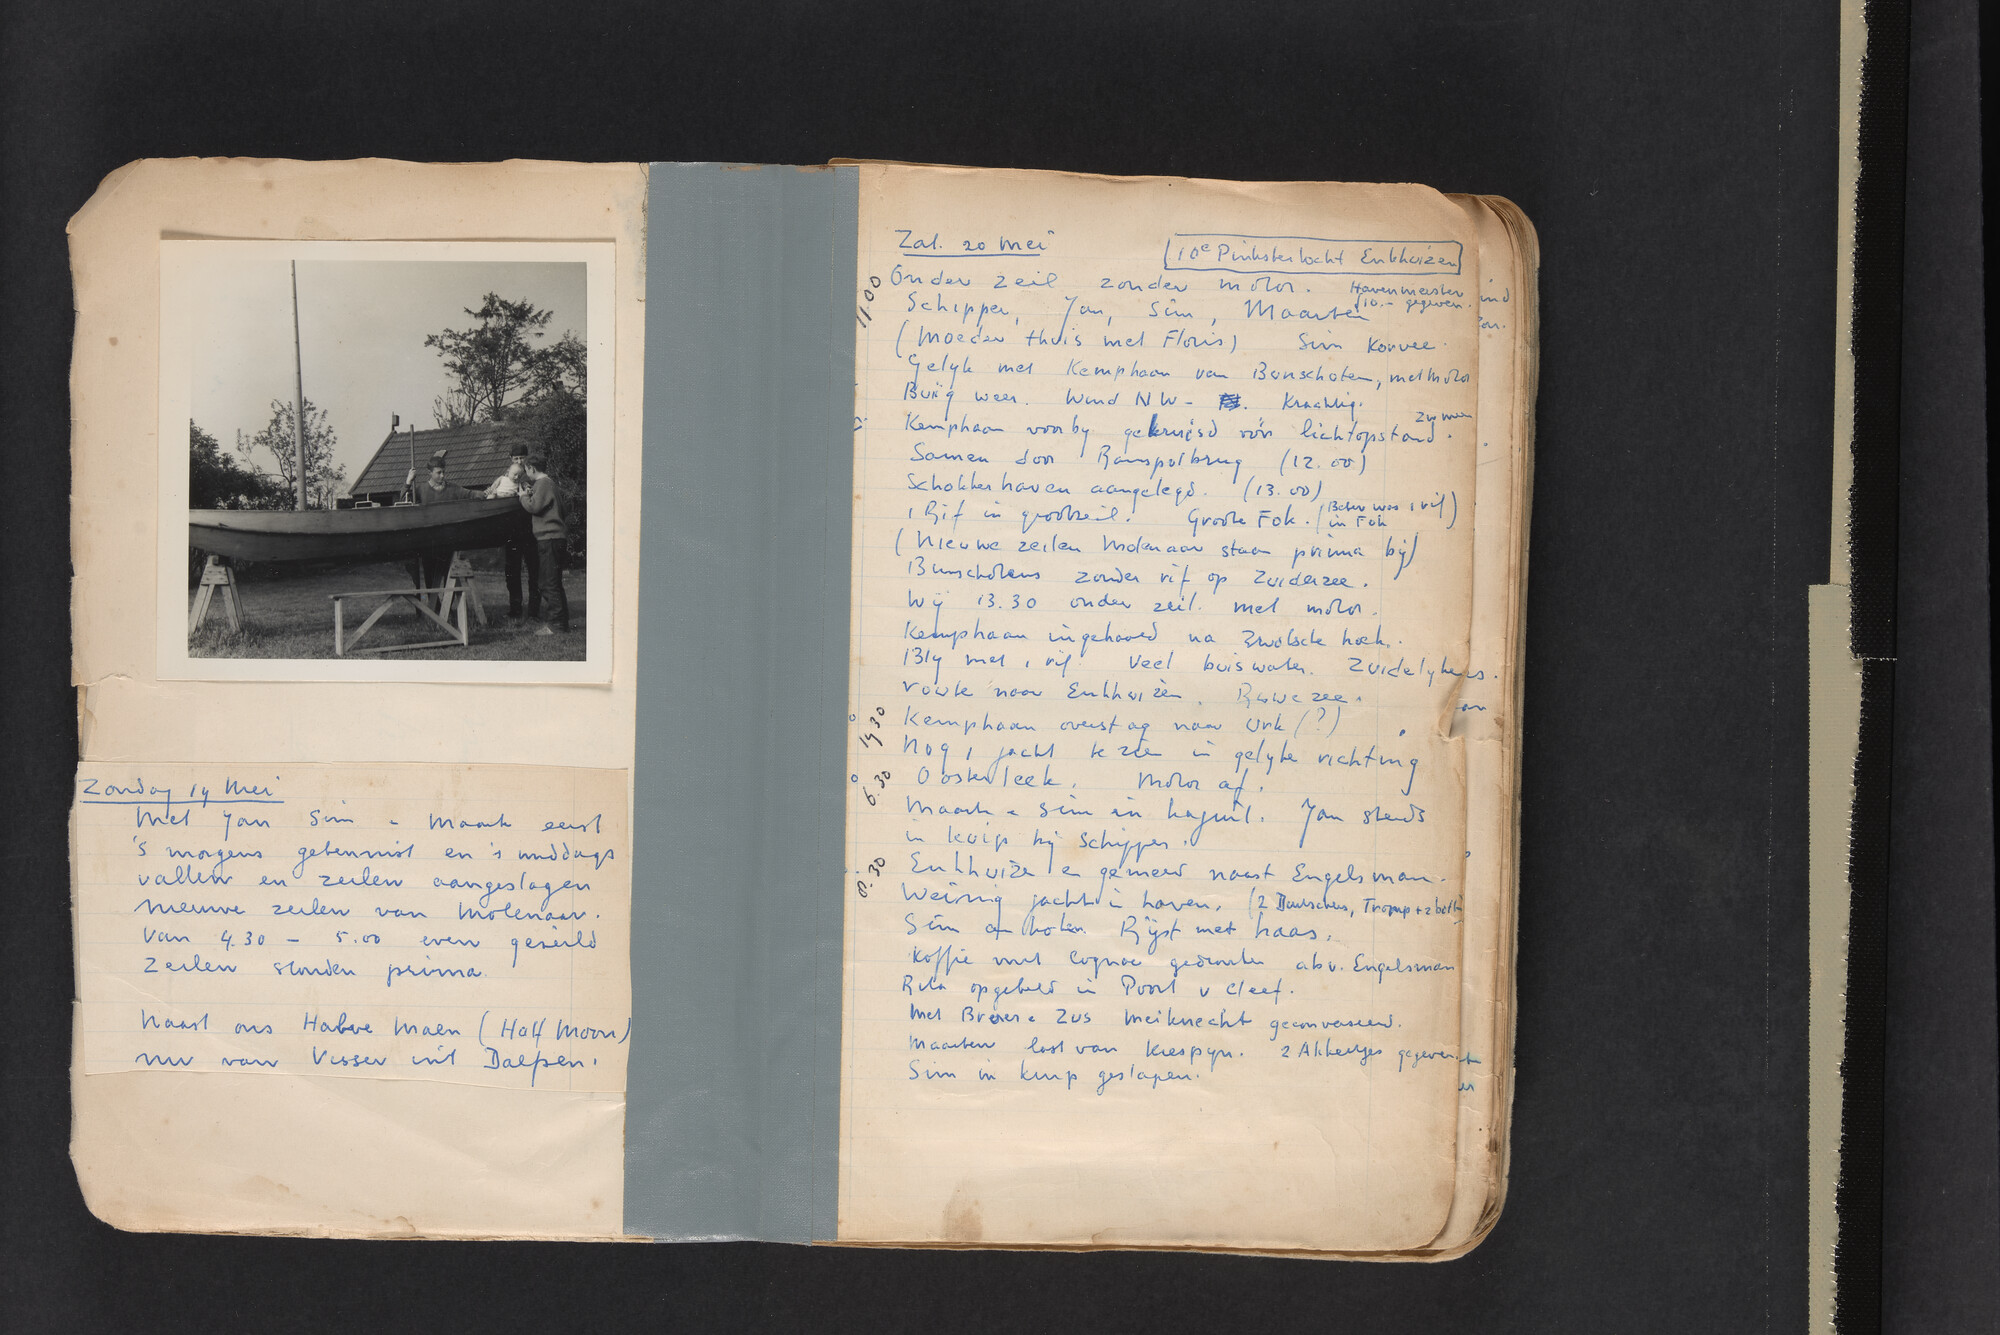 Zondag 14 Mei
Met Jan Sim + Maart eerst
's morgens getennist en 's middags
vallen en zeilen aangeslagen
Nieuwe zeilen van Molenaar.
Van 4.30 - 5.00 even gezeild
Zeilen stonden prima.
Naast ons Halve Maen (Half Moon)
nu van Visser uit Dalfsen.
Zat. 20 Mei
10e Pinkstertocht Enkhuizen
11.00
Onder zeil zonder motor.
Havenmeester
f10.- gegeven.
Schipper, Jan, Sim, Maarten
(Moeder thuis met Floris) Sim Korvee.
Gelyk met Kemphaan van Bunschoten, met motor
Buiïg weer. Wind NW - Krachtig.
Kemphaan voorby gekruisd vóór lichtopstand.
Samen door Ramspolbrug (12.00)
Schokkerhaven aangelegd. (13.00)
1 Rif in grootzeil. Groote Fok. (Beter was 1 rif in Fok)
(Nieuwe zeilen Molenaar staan prima bij)
Bunschotens zonder rif op Zuiderzee.
Wij 13.30 onder zeil. met motor.
Kemphaan ingehaald na Zwolsche hoek.
Bly met 1 rif. Veel buiswater. Zuidelyke
route naar Enkhuizen. Ruwe zee.
Kemphaan overstag naar Urk (?)
Nog 1 jacht te zien in gelyke richting
Oosterleek. Motor af.
Maart + Sim in kajuit. Jan steeds
in kuip bij Schipper.
Enkhuizen gemeerd naast Engelsman.
Weinig jacht in haven. (2 Duitschers, Tromp + 2 bott
Sim a koken Rijst met haas.
Koffie met Cognac gedronken abv. Engelsman
Rita opgebeld in Poort v Cleef.
Met Broer + Zus Meiknecht geconverseerd.
Maarten last van Kiespyn. 2 Akkertjes gegeven
Sim in kuip geslapen.